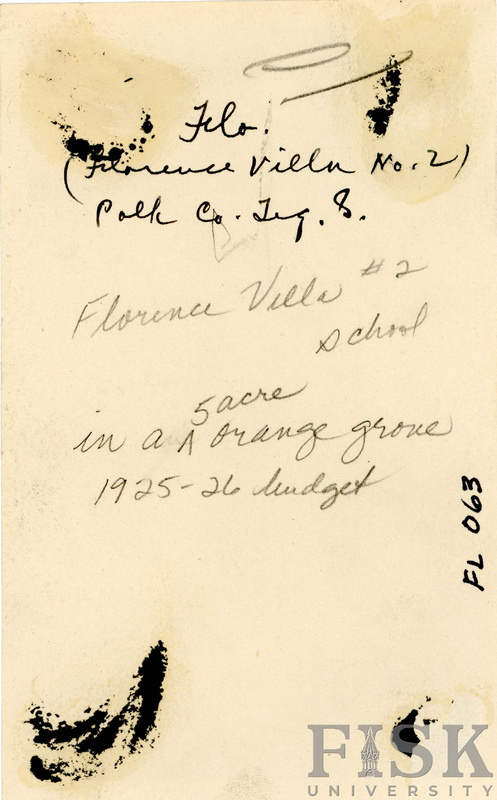 Fla.
(Florence Villa No. 2)
Polk Co.
Florence Villa #2
school
in a 5 acre orange grove
1925-26 budget
FL 063
FISK
UNIVERSITY